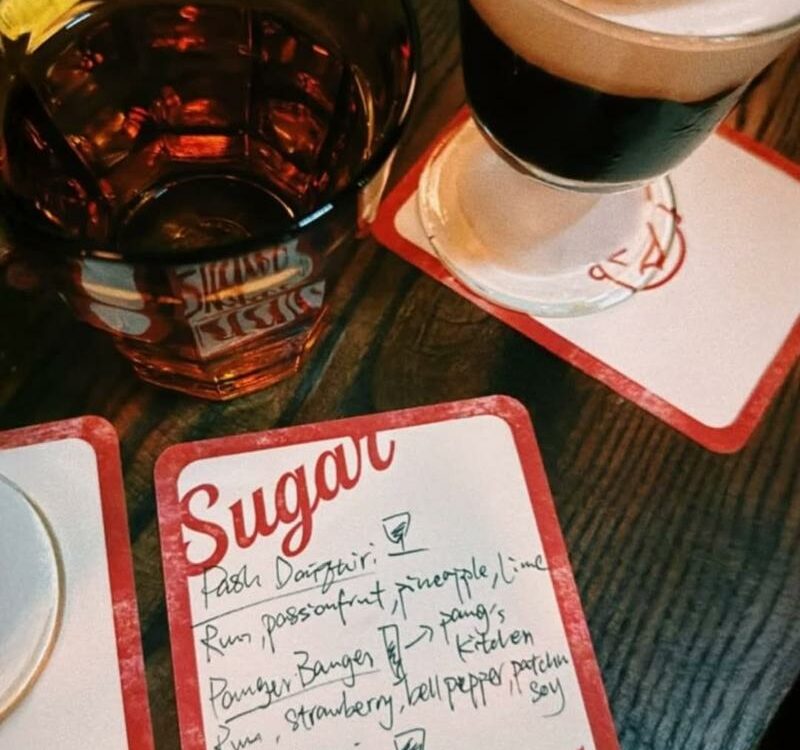 Sugar
Pash Daiquiri:
Rum, passionfruit, pineapple, lime
Panger Banger → pang's kitchen
Rum, strawberry, bell pepper, patchu
soy